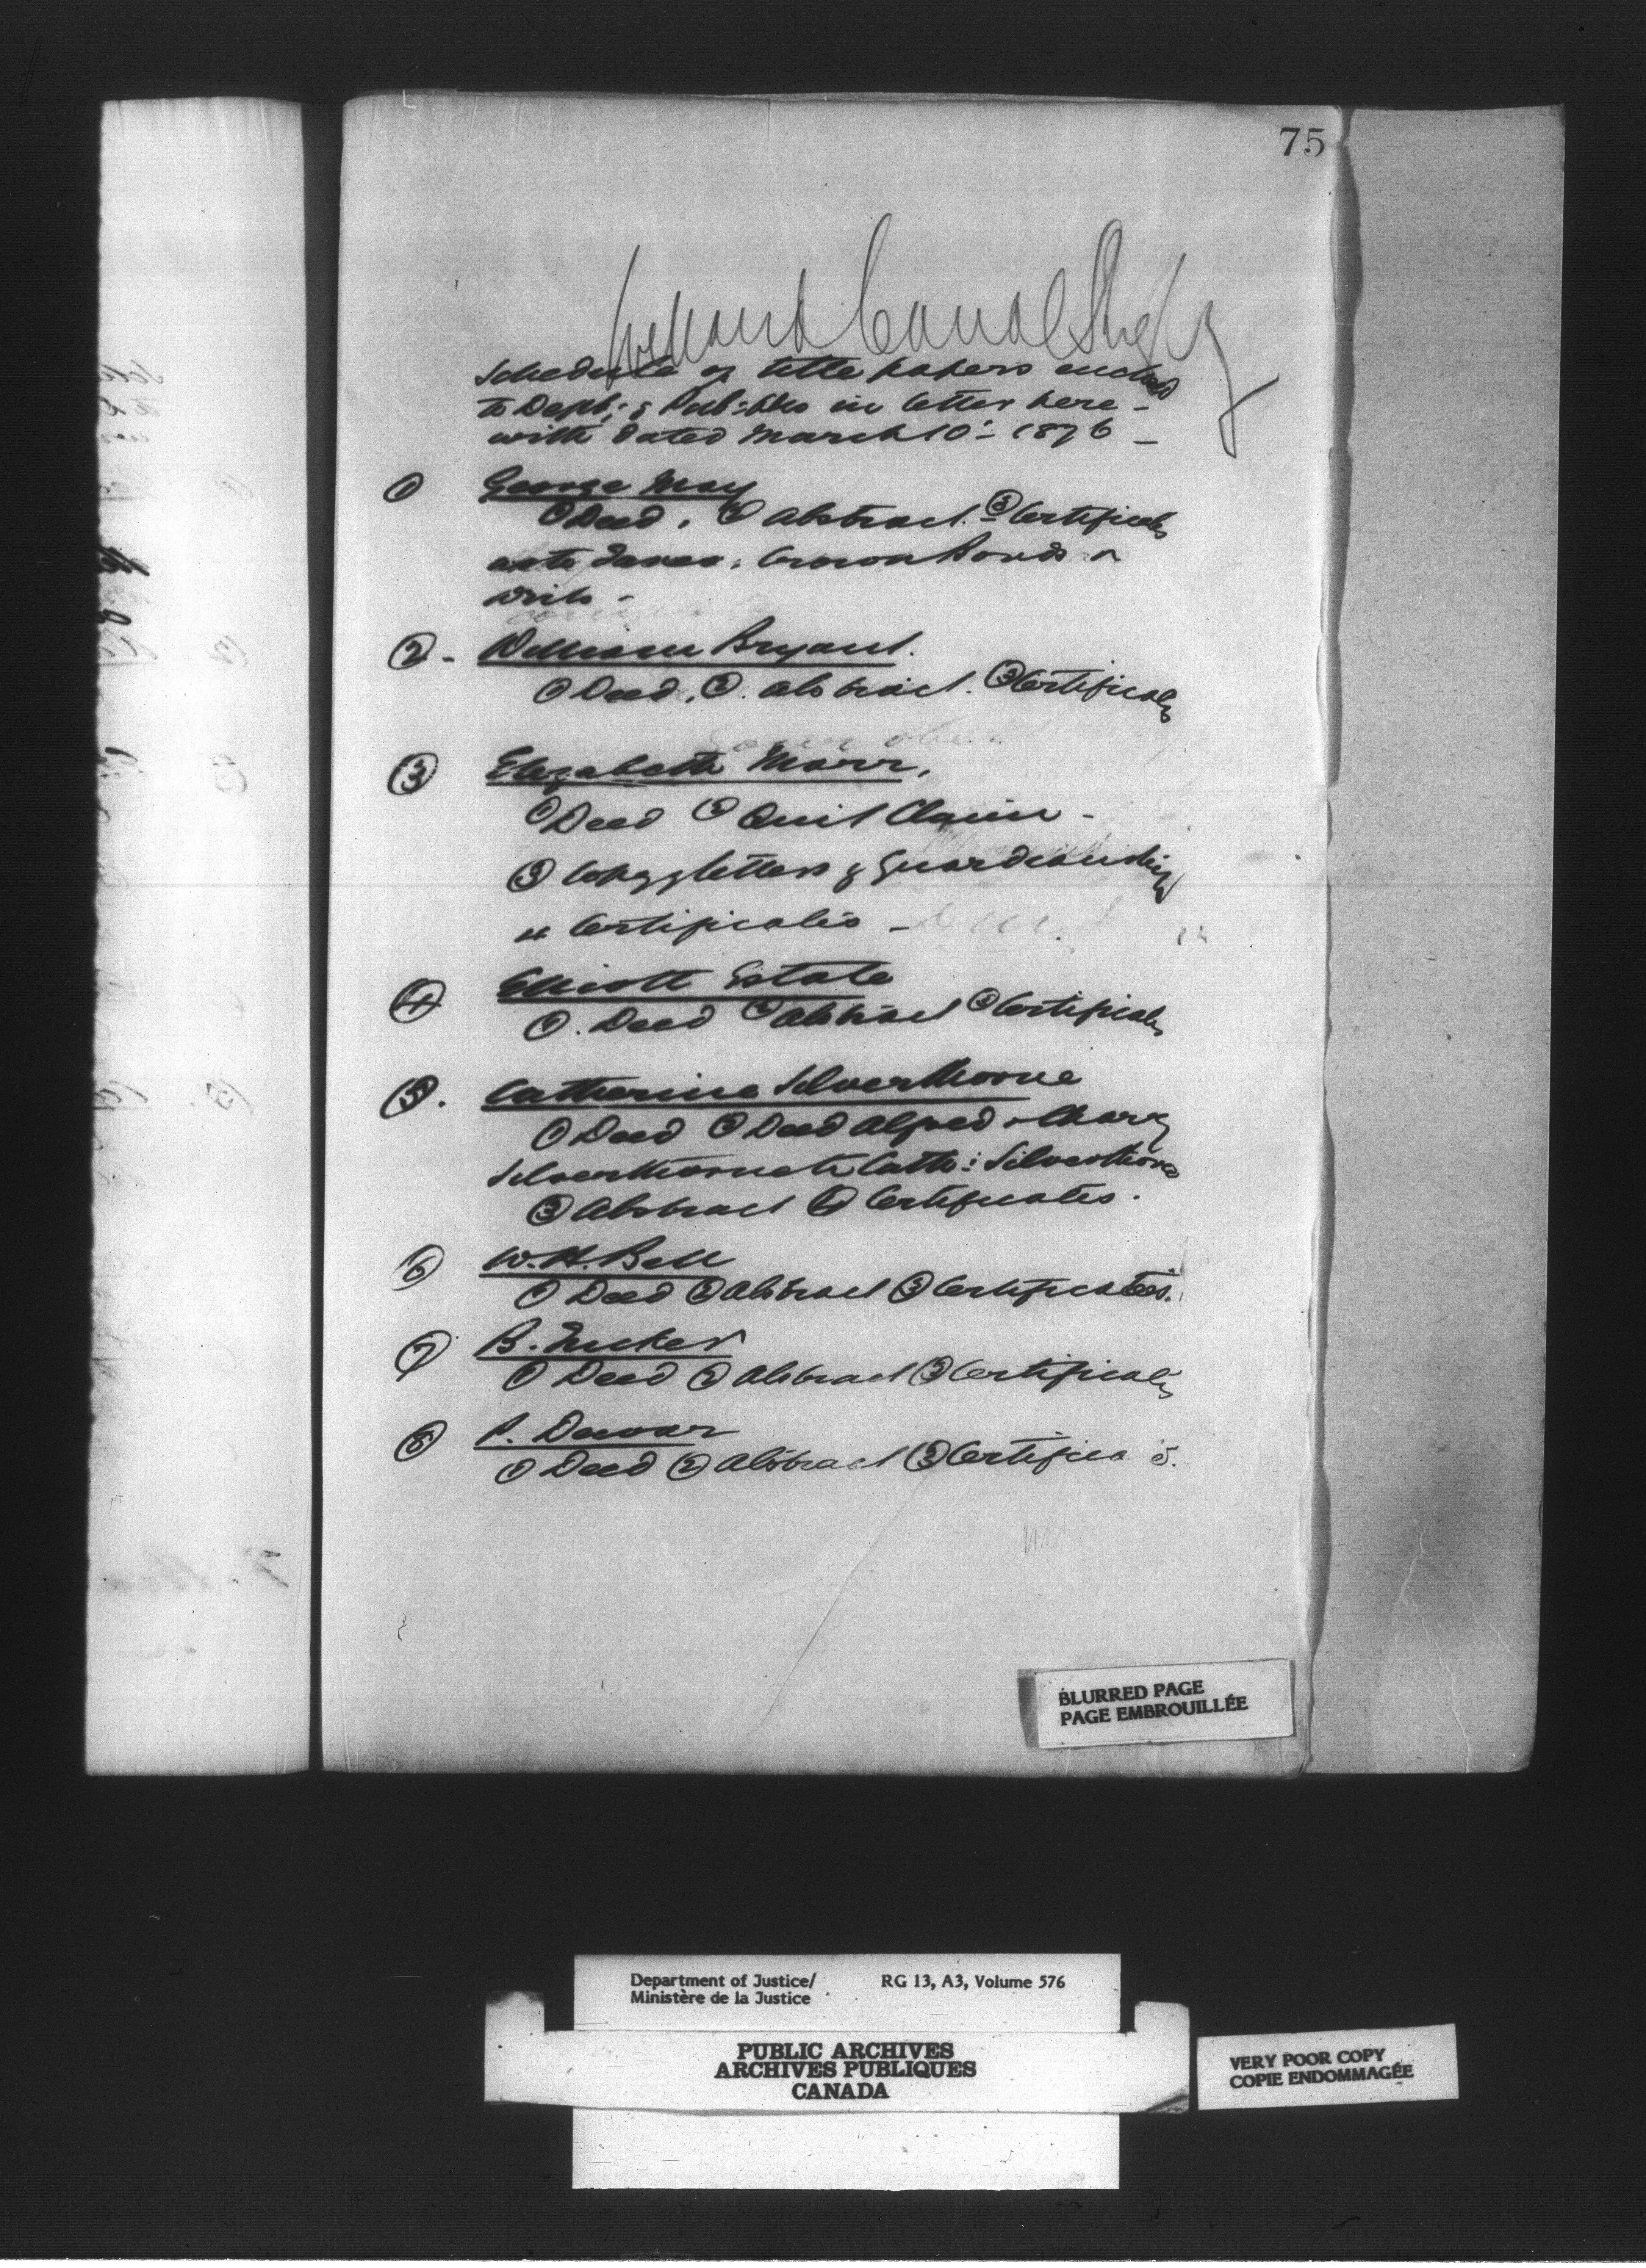 75
Welland Canal
Schedule of title papers enclosed
to Dept: of Pub: Wks in letter here-
with dated March 10th 1876 -
① George May
① Deed. ② Abstract. ③ Certificates
as to Taxes, Crown Bonds &
Writs -
② - William Bryant.
① Deed. ②. Abstract. ③ Certificates
③ Elizabeth Marr.
① Deed ② Quit Claim -
③ Copy letters of Guardianship
4 Certificates -
④ Elliott Estate
①. Deed ② Abstract ③ Certificates
⑤. Catherine Silverthorne
① Deed ② Deed Alfred & Mary
Silverthorne to Cath: Silverthorne
③ Abstract ④ Certificates.
⑥ W. H. Bell
① Deed ② Abstract ③ Certificates.
⑦ B. Tucker
① Deed ② Abstract ③ Certificates
⑧ P. Dewar
① Deed ② Abstract ③ Certifica s.
BLURRED PAGE
PAGE EMBROUILLÉE
Department of Justice/ RG 13, A3, Volume 576
Ministère de la Justice
PUBLIC ARCHIVES
ARCHIVES PUBLIQUES
CANADA
VERY POOR COPY
COPIE ENDOMMAGÉE